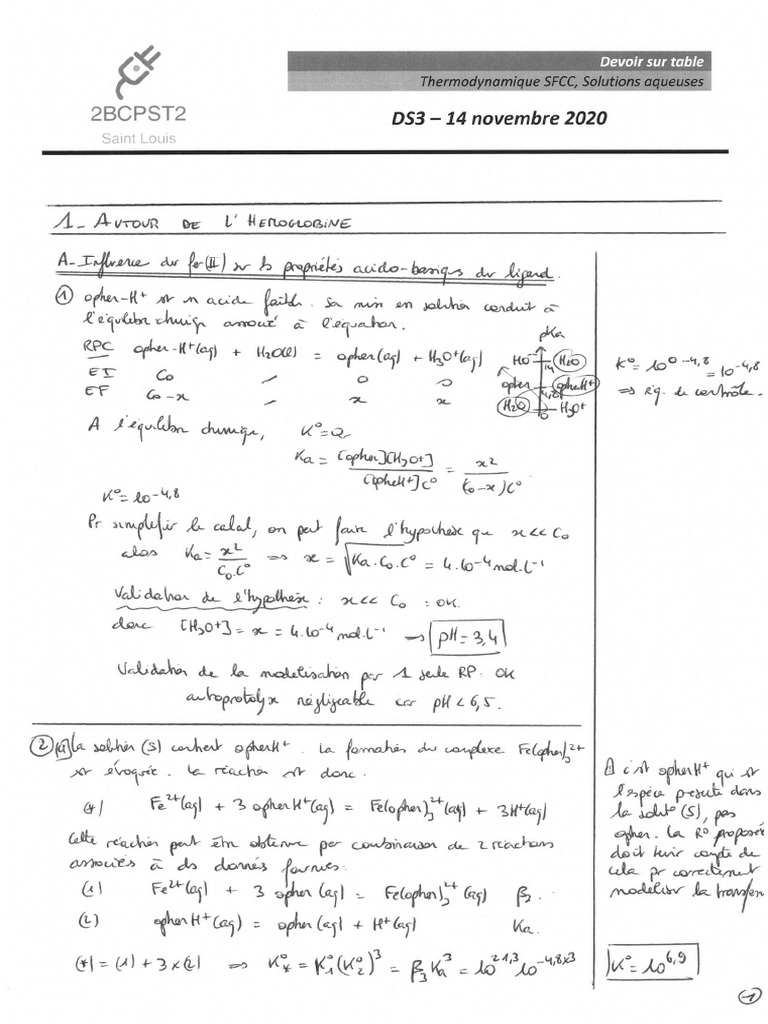 Devoir sur table
Thermodynamique SFCC, Solutions aqueuses
2BCPST2
Saint Louis
DS3 – 14 novembre 2020
1- AUTOUR DE L'HEMOGLOBINE
A- Influence du fer(II) sur les propriétés acido-basiques du ligand.
① opher-H⁺ est un acide faible. Sa mise en solution conduit à
l'équilibre chimique associé à l'équation.
RPC opher-H⁺(aq) + H2O(l) = opher(aq) + H3O⁺(aq)
EI C0 / 0 0
EF C0-x / x x
pKa
HO⁻ 14 H2O
opher 4,8 opherH⁺
H2O 0 H3O⁺
K° = 10^(0-4,8) = 10^(-4,8)
=> rég. de contrôle.
A l'équilibre chimique, K° = Qr
Ka = [opher][H3O⁺] / [opherH⁺]C° = x² / (C0-x)C°
K° = 10^(-4,8)
Pr simplifier le calcul, on peut faire l'hypothèse que x << C0
alors Ka = x² / C0.C° => x = √(Ka.C0.C°) = 4.10⁻⁴ mol.L⁻¹
Validation de l'hypothèse : x << C0 : OK.
donc [H3O⁺] = x = 4.10⁻⁴ mol.L⁻¹ → pH = 3,4
Validation de la modélisation par 1 seule RP : OK
autoprotolyse négligeable car pH < 6,5.
② a) La solution (S) contient opherH⁺. La formation du complexe Fe(opher)3²⁺
est évoquée. La réaction est donc.
(*) Fe²⁺(aq) + 3 opherH⁺(aq) = Fe(opher)3²⁺(aq) + 3H⁺(aq)
Cette réaction peut être obtenue par combinaison de 2 réactions
associées à des données fournies:
(1) Fe²⁺(aq) + 3 opher (aq) = Fe(opher)3²⁺ (aq) β2.
(2) opherH⁺(aq) = opher(aq) + H⁺(aq) Ka.
(*) = (1) + 3×(2) => K°* = K°1(K°2)³ = β3 Ka³ = 10^21,3 10^(-4,8×3)
⚠ c'est opherH⁺ qui est
l'espèce présente dans
la solut° (S), pas
opher. La R° proposée
doit tenir compte de
cela pr correctement
modéliser la transfor
K° = 10^6,9
1